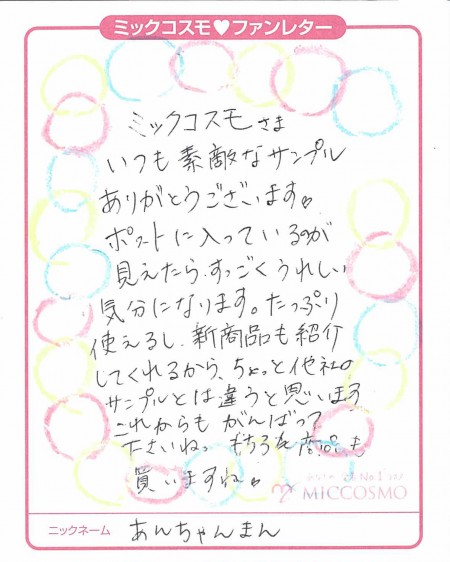 ミックコスモ♥ファンレター
ミックコスモさま
いつも素敵なサンプル
ありがとうございます♡
ポストに入っているのが
見えたら、すっごくうれしい
気分になります。たっぷり
使えるし、新商品も紹介
してくれるから、ちょっと他社の
サンプルとは違うと思います
これからも がんばって
下さいね。 もちろん 商品も
買いますね♡
MICCOSMO
ニックネーム あんちゃんまん